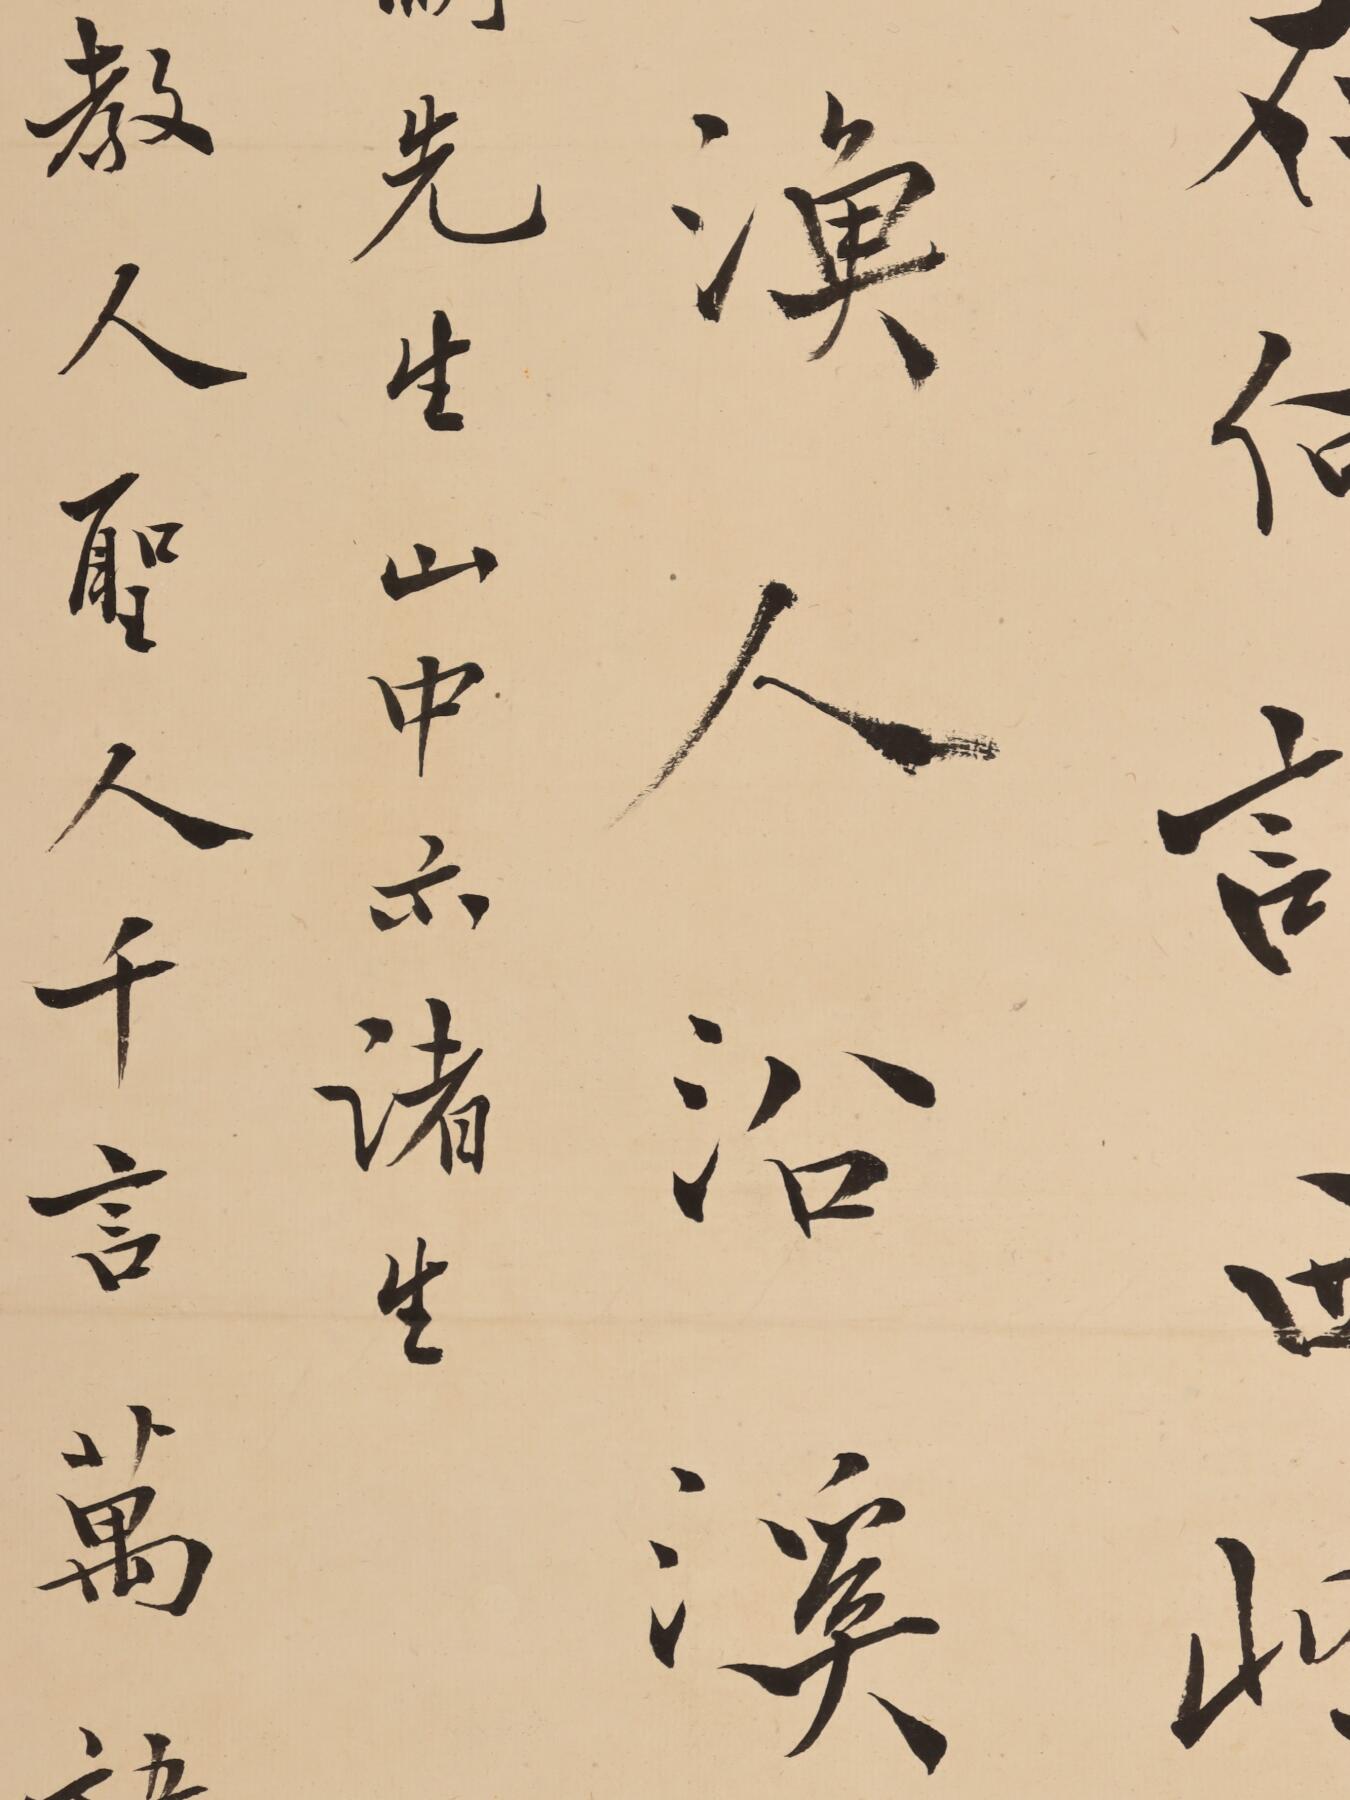 何言西
渔人沿溪
先生山中示诸生
教人聖人千言萬